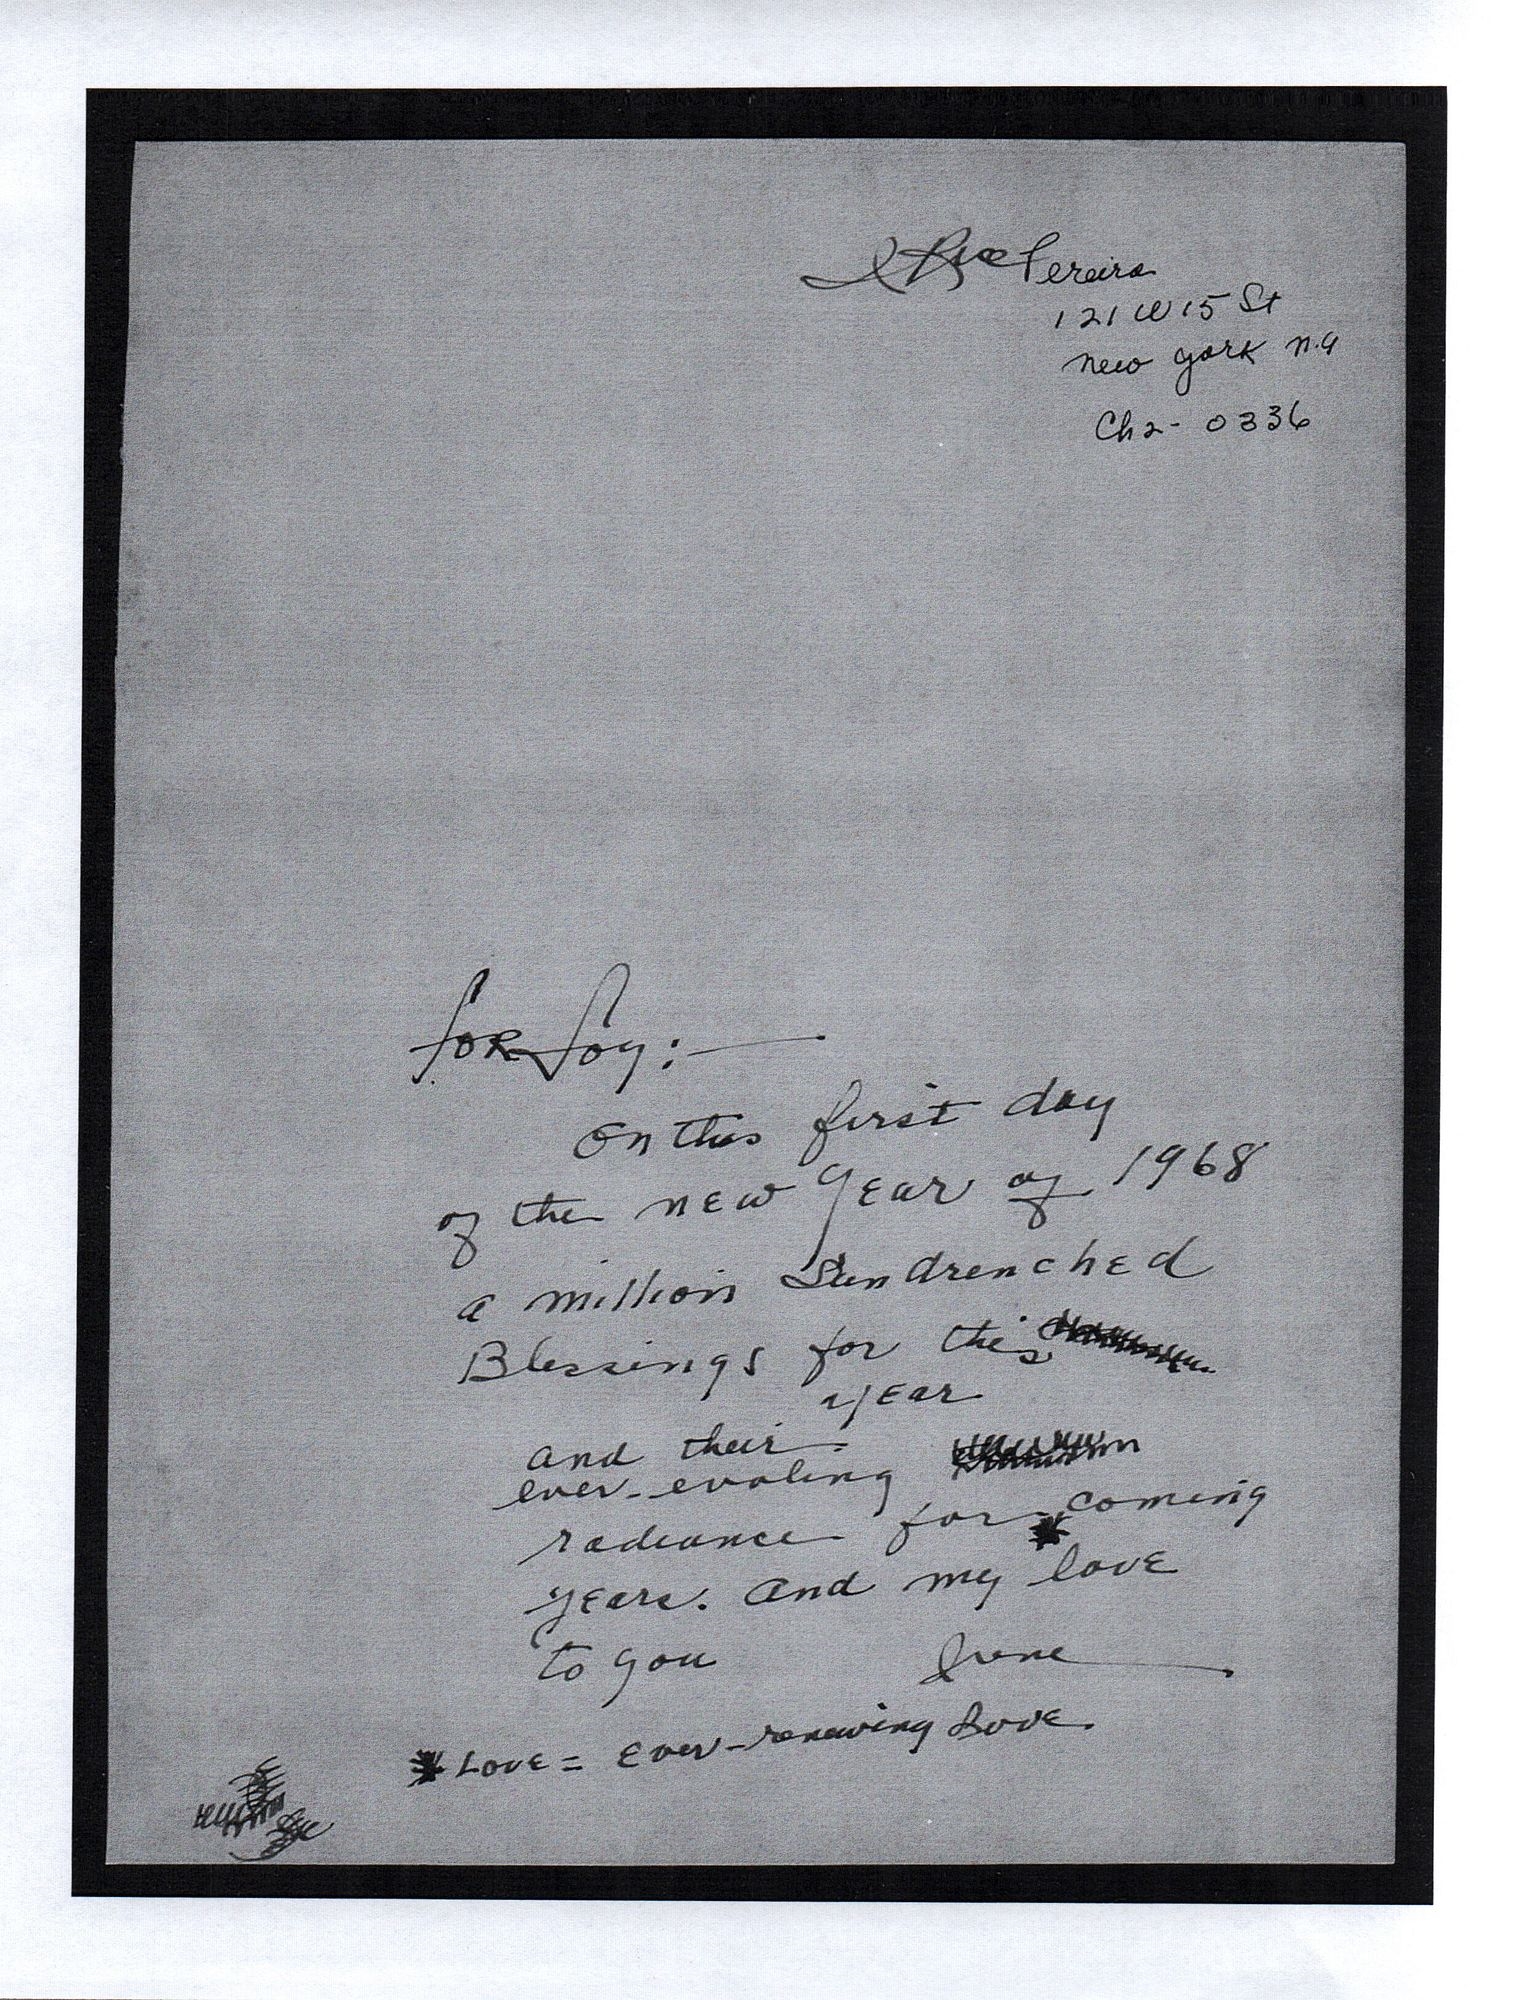 I Rice Pereira
121 W 15 St
New York N.Y
Ch2- 0336
For Joy:
On this first day
of the new Year of 1968
a million Sundrenched
Blessings for this
year
and their
ever-evolving
radiance for coming
years. And my *love
to you Irene
*Love = Ever-renewing Love.